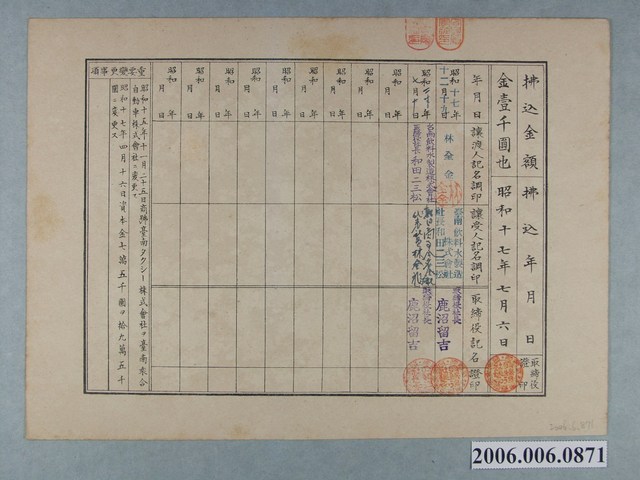 拂込金額 拂込年月日 取締役證印
金壹千圓也 昭和十七年七月六日
年月日 讓渡人記名調印 讓受人記名調印 取締役記名證印
昭和十七年十二月十九日 林 金 臺南飲料水製造株式會社 社長 和田二三松 取締役社長 鹿沼留吉
昭和二十年七月十日 臺南飲料水製造株式會社 取締役社長 和田二三松 取締役社長 鹿沼留吉
昭和 年 月 日
昭和 年 月 日
昭和 年 月 日
昭和 年 月 日
昭和 年 月 日
昭和 年 月 日
昭和 年 月 日
昭和 年 月 日
重要變更事項
昭和十五年十一月二十五日商號臺南タクシー株式會社ヲ臺南乘合
自動車株式會社ニ變更ス
昭和十七年四月十六日資本金七萬五千圓ヲ拾九萬五千
圓ニ變更ス
2006.6.871
2006.006.0871